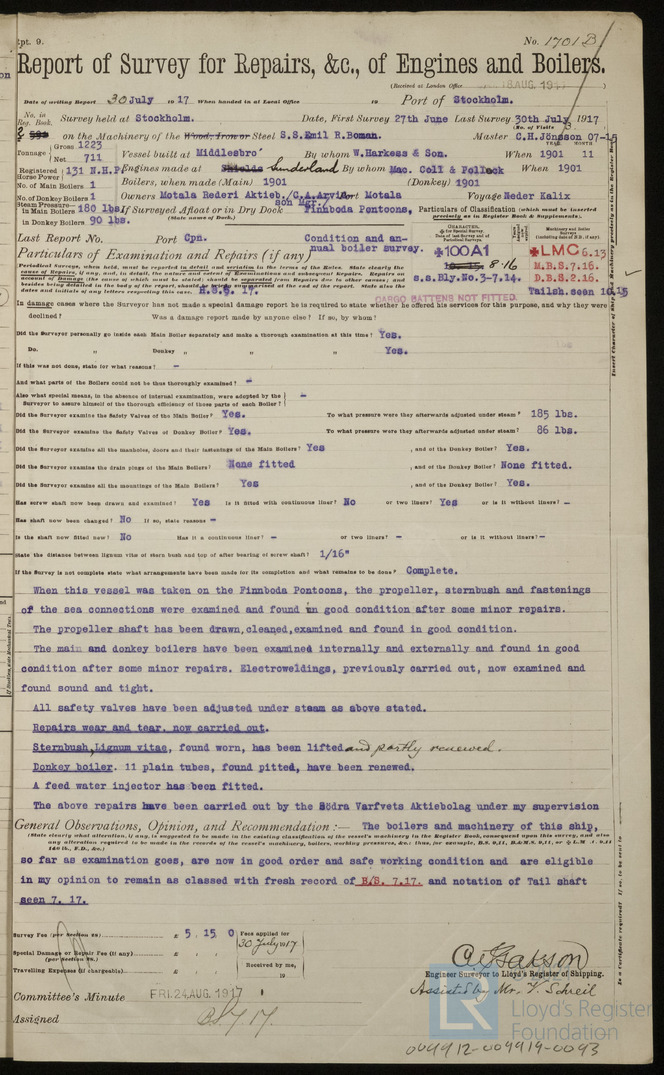 Rpt. 9.
No. 1701 B
Report of Survey for Repairs, &c., of Engines and Boilers.
(Received at London Office 18 AUG. 19
Date of writing Report 30 July 19 17 When handed in at Local Office 19 Port of Stockholm.
No. in Reg. Book. Survey held at Stockholm. Date, First Survey 27th June Last Survey 30th July 1917
(No. of Visits
on the Machinery of the Wood, Iron or Steel S.S. Emil R. Boman. Master C.H. Jönsson 07-15
Tonnage Gross 1223 Net 711 Vessel built at Middlesbro' By whom W. Harkess & Son. When 1901 11
YEAR MONTH
Registered Horse Power 131 N.H.P. Engines made at Shields Sunderland By whom Mac. Coll & Pollock When 1901
No. of Main Boilers 1 Boilers, when made (Main) 1901 (Donkey) 1901
No. of Donkey Boilers 1 Owners Motala Rederi Aktieb./C.A. Arvids son Mgr./ Port Motala Voyage Neder Kalix
Steam Pressure in Main Boilers 180 lbs. If Surveyed Afloat or in Dry Dock Finnboda Pontoons, Particulars of Classification (which must be inserted precisely as in Register Book & Supplements).
in Donkey Boilers 90 lbs. (State name of Dock.)
Last Report No. Port Cpn. Condition and annual boiler survey.
Particulars of Examination and Repairs (if any)
+100A1
8.16
s.s.Bly.No.3-7.14.
+LMC 6.13
M.B.S.7.16.
D.B.S.2.16.
Tailsh.seen 10.15
CARGO BATTENS NOT FITTED.
In damage cases where the Surveyor has not made a special damage report he is required to state whether he offered his services for this purpose, and why they were
declined? Was a damage report made by anyone else? If so, by whom?
Did the Surveyor personally go inside each Main Boiler separately and make a thorough examination at this time? Yes.
Do. " Donkey " " " Yes.
If this was not done, state for what reasons? -
And what parts of the Boilers could not be thoroughly examined? -
Also what special means, in the absence of internal examination, were adopted by the Surveyor to assure himself of the thorough efficiency of those parts of each Boiler? -
Did the Surveyor examine the Safety Valves of the Main Boiler? Yes. To what pressure were they afterwards adjusted under steam? 185 lbs.
Did the Surveyor examine the Safety Valves of Donkey Boiler? Yes. To what pressure were they afterwards adjusted under steam? 86 lbs.
Did the Surveyor examine all the manholes, doors and their fastenings of the Main Boilers? Yes , and of the Donkey Boiler? Yes.
Did the Surveyor examine the drain plugs of the Main Boilers? None fitted , and of the Donkey Boiler? None fitted.
Did the Surveyor examine all the mountings of the Main Boilers? Yes , and of the Donkey Boiler? Yes.
Has screw shaft now been drawn and examined? Yes Is it fitted with continuous liner? No or two liners? Yes or is it without liners? -
Has shaft now been changed? No If so, state reasons -
Is the shaft now fitted new? No Has it a continuous liner? - or two liners? - or is it without liners? -
State the distance between lignum vitæ of stern bush and top of after bearing of screw shaft? 1/16"
If the Survey is not complete state what arrangements have been made for its completion and what remains to be done? Complete.
When this vessel was taken on the Finnboda Pontoons, the propeller, sternbush and fastenings
of the sea connections were examined and found in good condition after some minor repairs.
The propeller shaft has been drawn, cleaned, examined and found in good condition.
The main and donkey boilers have been examined internally and externally and found in good
condition after some minor repairs. Electroweldings, previously carried out, now examined and
found sound and tight.
All safety valves have been adjusted under steam as above stated.
Repairs wear and tear, now carried out.
Sternbush, Lignum vitae, found worn, has been lifted and partly renewed.
Donkey boiler. 11 plain tubes, found pitted, have been renewed.
A feed water injector has been fitted.
The above repairs have been carried out by the Södra Varfvets Aktiebolag under my supervision
General Observations, Opinion, and Recommendation :— The boilers and machinery of this ship,
so far as examination goes, are now in good order and safe working condition and are eligible
in my opinion to remain as classed with fresh record of B/S. 7.17. and notation of Tail shaft
seen 7. 17.
Survey Fee (per Section 28) £ 5 . 15 0 Fees applied for 30 July 1917
Special Damage or Repair Fee (if any) (per Section 28) £
Travelling Expenses (if chargeable) £ Received by me, 19
Engineer Surveyor to Lloyd's Register of Shipping.
Assisted by Mr. V. Schreil
Committee's Minute FRI. 24 AUG. 1917
Assigned
LR Lloyd's Register Foundation
004912-004919-0093